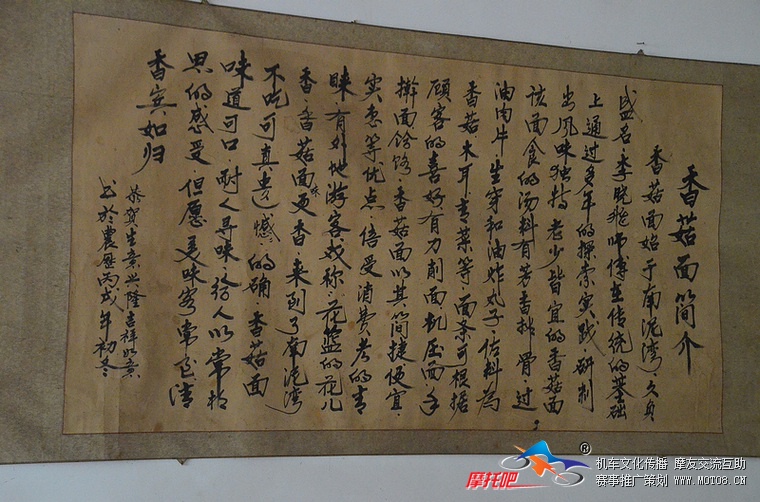 香菇面简介
香菇面始于南泥湾，久负
盛名，李晓雅师傅在传统的基础
上通过多年的探索实践，研制
出风味独特，老少皆宜的香菇面
该面食的汤料有芳香排骨，过
油肉片，生穿和油炸丸子，佐料为
香菇，木耳，青菜等，面条可根据
顾客的喜好有刀削面，机压面，手
擀面，饸饹，香菇面以其简捷便宜，
实惠等优点，倍受消费者的青
睐，有外地游客戏称，花篮的花儿
香，香菇面味更香，来到了南泥湾
不吃可真遗憾，的确，香菇面
味道可口，耐人寻味，给人以常相
思的感受，但愿美味客常在，清
香宾如归
恭贺生意兴隆吉祥如意
书於農歷丙戌年初冬
摩托吧®
机车文化传播 摩友交流互助
赛事推广策划 WWW.MOTO8.CN